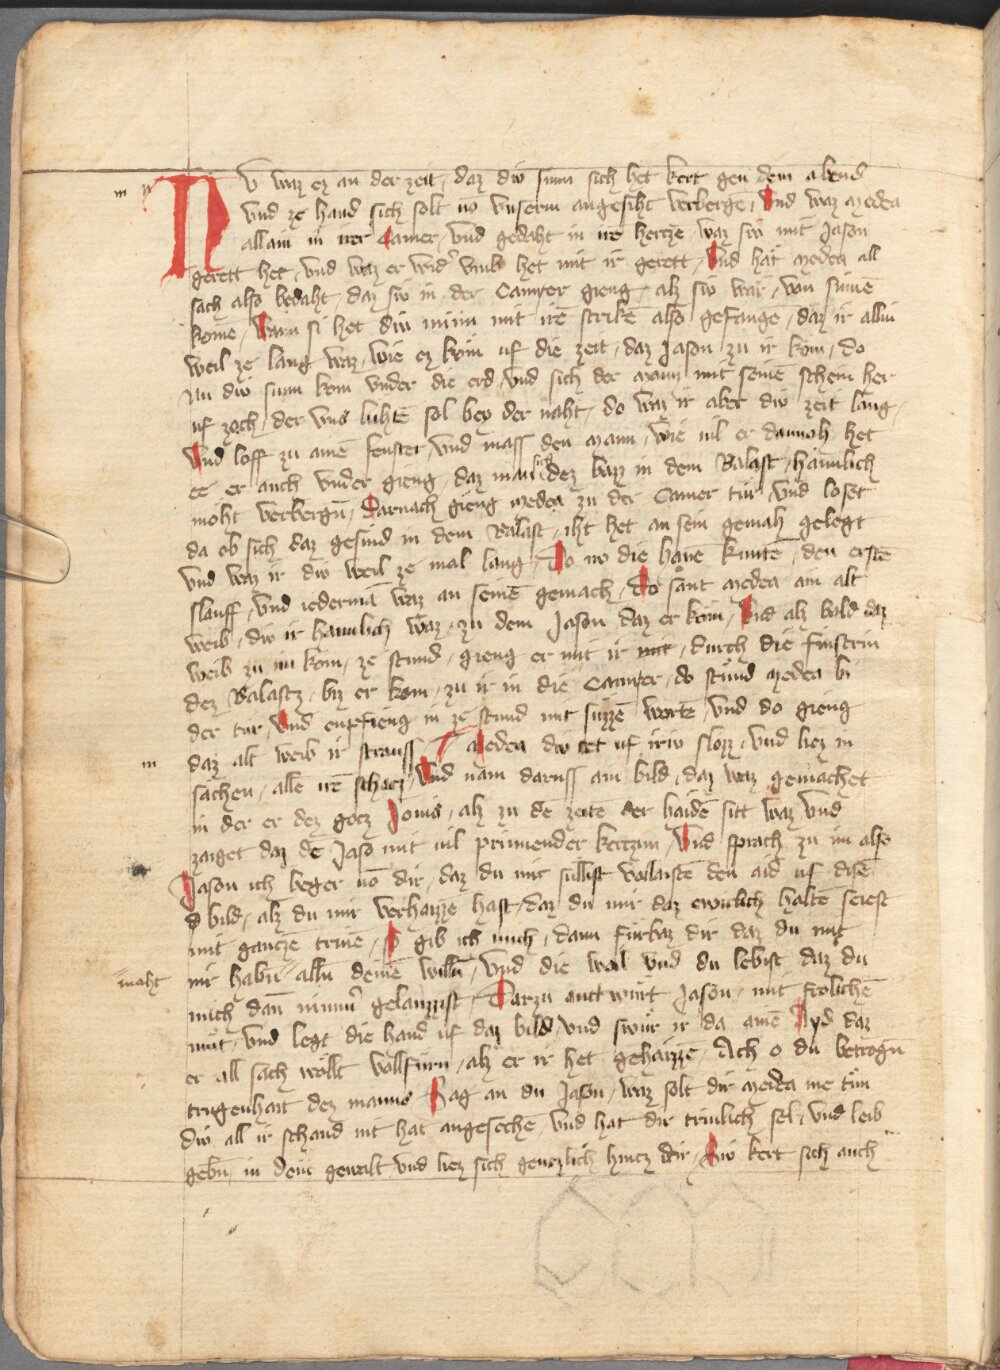 Nv waz ez an der zeit / daz diw sunn sich het kert gen dem abend
vnd ze hand sich solt uo vnserm angesiht verberge / Vnd waz medea
allain in irer Camer / vnd gedaht in ire hertze / waz siw mit Jason
gerett het / vnd waz er wider vmb het mit ir gerett / Vnd hat medea all
sach also bedaht / daz siw in der Camer gieng / alz siw wär / van sinne
kome / Wann si het diw minn mit ire strike also gefange / daz ir alliu
weil ze lang waz / wie ez köm uf die zeit / daz Jason zu ir köm / do
nu diw sunn kom vnder die erd / vnd sich der mann mit seine schein her
uf zoch / der vns luhte sol bey der naht / do waz ir aber diw zeit lang /
Vnd loff zu aine fenster / vnd mass den mann / wie uil er dannoh het
ee er auch vnder gieng / daz man sich dez bazz in dem Balast / haimlich
moht verbergn / Darnach gieng medea zu der Camer tür / vnd loset
da ob sich daz gesind in dem Balast / iht het an sein gemah gelegt
vnd waz ir diw weil ze mal lang / Do nv die hanē kunte / den erste
slauff / vnd iederma waz an seine gemach / Do sant medea ain alt
weib / diw ir haimlich waz / zu dem Jason daz er köm / Vnd alz bald daz
weib zu im kom / ze stund / gieng er mit ir mit / durch die finstern
dez Balastz / biz er kom / zu ir in die Camer / do stuond medea bi
der tür / Vnd enpfieng in ze stund mit süzze worte / vnd do gieng
daz alt weib ir strauss / Medea diw tet uf iriw slozz / vnd liez in
sachen / alle ire schacz / Vnd nam daruss ain bild / daz waz gemachet
in der er dez gotz Jouis / alz zu de zeite der haide sitt waz vnd
zaiget daz de Jaso mit uil prinnender kerczin / Vnd sprach zu im also
Jason ich beger uo dir / daz du mir süllist vollaiste den aid uf dise
d bild / alz du mir verhaizze hast / daz du mir daz ewiclich halte seiest
mit gancze triwe / So gib ich mich / dann fürbaz dir daz du mit
mir habn alln deine willn / Vnd die weil vnd du lebist daz du
moht
mich dan nimmer gelauzzist / Darzu antt wurt Jason / mit frolichē
müt / vnd legt die hand uf daz bild / vnd swuor ir da aine Ayd daz
er all sach wöllt vollfürn / alz er ir het gehaizze / Ach o du betrogn
trugenhait dez manns / Sag an du Jason / waz solt dir medea me tün
diw all ir schand nit hat angesechē / vnd hat dir trinlich sel / vnd leib
gebn / in dein gewalt vnd liez sich genczlich hincz dir / Siw kert sich auch